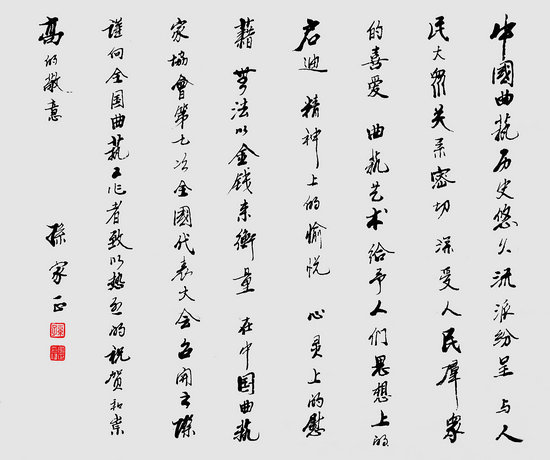 中國曲藝历史悠久流派纷呈与人
民大众关系密切深受人民群众
的喜爱曲藝艺术给予人们思想上的
启迪精神上的愉悦心灵上的慰
藉无法以金钱来衡量在中国曲藝
家協會第七次全國代表大会召開之際
谨向全国曲藝工作者致以热烈的祝贺和崇
高的敬意
孫家正